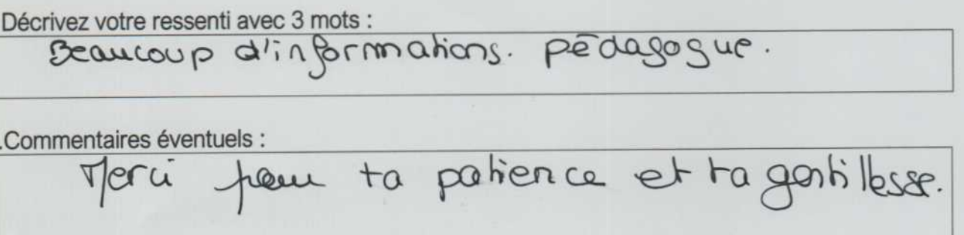 Décrivez votre ressenti avec 3 mots :
Beaucoup d'informations. pédagogue.
.Commentaires éventuels :
Merci pour ta patience et ta gentillesse.